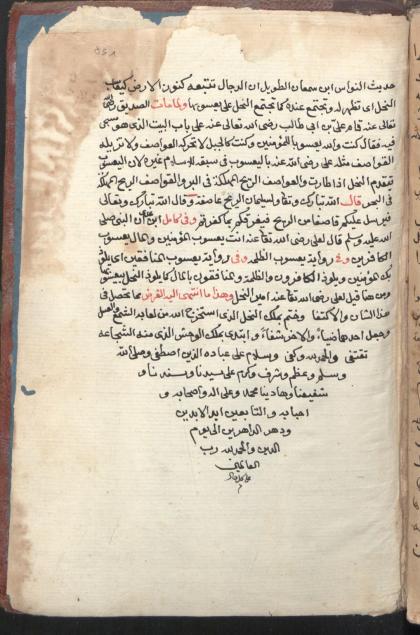 حديث النواس ابن سمعان الطويل ان الدجال تتبعه كنوز الارض كيعاسيب
النحل اي تظهر له وتجتمع عنده كما تجتمع النحل على يعسوبها ولما مات الصديق رضي الله
تعالى عنه قام علي بن ابي طالب رضي الله تعالى عنه على باب البيت الذي هو مسجى
فيه فقال كنت والله يعسوبا للمؤمنين وكنت كالجبل لا تحركه العواصف ولا تزيله
القواصف مثله علي رضي الله عنه باليعسوب في سبقه للاسلام غيره لان اليعسوب
يتقدم النحل اذا طارت والعواصف الريح المهلكة في البر والقواصف الريح المهلكة
في البحر قال الله تبارك وتعالى ولسليمان الريح عاصفة وقال الله تبارك وتعالى
فيرسل عليكم قاصفا من الريح فيغرقكم بما كفرتم وفي كامل ابن عدي ان النبي صلى
الله عليه وسلم قال لعلي رضي الله تعالى عنه انت يعسوب المؤمنين والمال يعسوب
الكافرين وفي رواية يعسوب الظلمة وفي رواية يعسوب المنافقين اي يلوذ
بك المؤمنين ويلوذ الكافرون والظلمة والمنافقون بالمال كما يلوذ النحل بيعسوبها
ومن هنا قيل لعلي رضي الله تعالى عنه امير النحل وهذا ما انتهى اليه الغرض مما يحصل في
هذا الشان والاكتفا وختم بملك النحل الذي استخرج الله من لعابه الشمع والعسل
وجعل احدهما ضياء والاخر شفاء وابتدي بملك الوحش الذي منه الشجاعة
تقتفى والحمد لله وكفى وسلام على عباده الذين اصطفى وصلى الله
وسلم وعظم وشرف وكرم على سيدنا وسندنا و
شفيعنا وهادينا محمد وعلى اله واصحابه و
احبابه والتابعين ابد الابدين
ودهر الداهرين الى يوم
الدين والحمد لله رب
العالمين